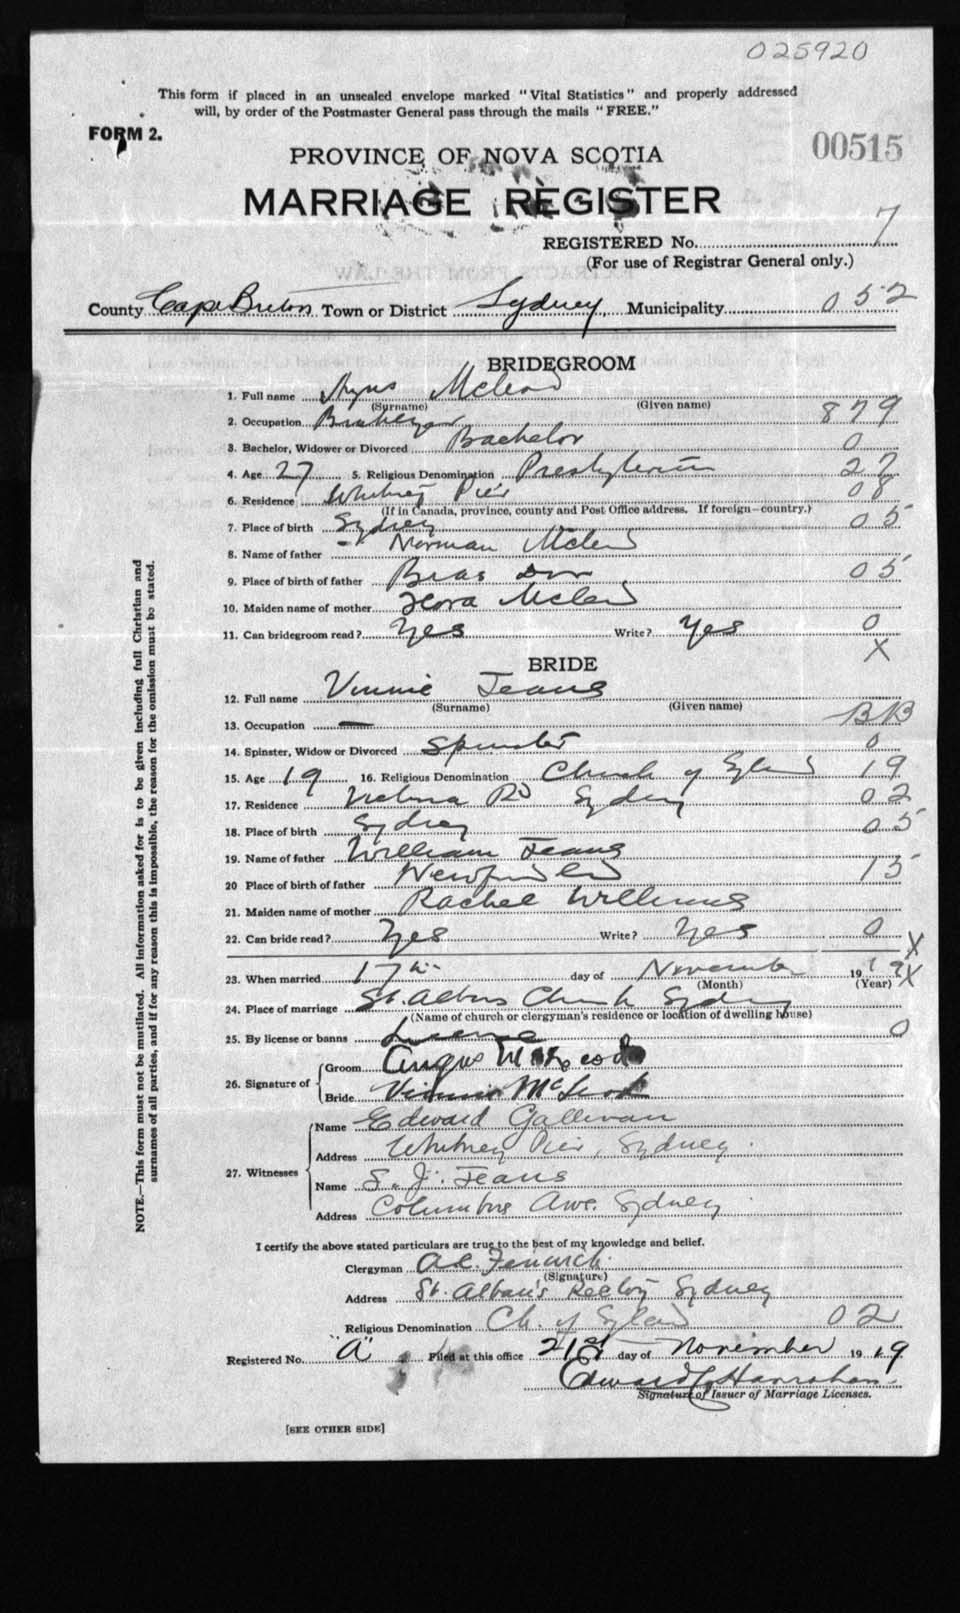 025920
This form if placed in an unsealed envelope marked "Vital Statistics" and properly addressed
will, by order of the Postmaster General pass through the mails "FREE."
FORM 2.
00515
PROVINCE OF NOVA SCOTIA
MARRIAGE REGISTER
REGISTERED No. 7
(For use of Registrar General only.)
County Cape Breton Town or District Sydney Municipality 052
BRIDEGROOM
1. Full name Angus McLeod
(Surname) (Given name)
2. Occupation 879
3. Bachelor, Widower or Divorced Bachelor 0
4. Age 27 5. Religious Denomination Presbyterian 27
6. Residence Whitney Pier 08
(If in Canada, province, county and Post Office address. If foreign—country.)
7. Place of birth Sydney 05
8. Name of father Norman McLeod
9. Place of birth of father Bras Dor 05
10. Maiden name of mother Flora McLeod
11. Can bridegroom read? Yes Write? Yes 0
X
BRIDE
12. Full name Vinnie Jeans
(Surname) (Given name)
13. Occupation — BB
14. Spinster, Widow or Divorced Spinster 0
15. Age 19 16. Religious Denomination Church of England 19
17. Residence Victoria Rd Sydney 02
18. Place of birth Sydney 05
19. Name of father William Jeans
20 Place of birth of father Newfundland 15
21. Maiden name of mother Rachel Williams
22. Can bride read? Yes Write? Yes 0 X
23. When married 17th day of November 1919 X
(Month) (Year)
24. Place of marriage St. Albans Church Sydney
(Name of church or clergyman's residence or location of dwelling house)
25. By license or banns License 0
26. Signature of
Groom Angus McLeod
Bride Vinnie McLeod
27. Witnesses
Name Edward Gallivan
Address Whitney Pier, Sydney.
Name S. J. Jeans
Address Columbus Ave. Sydney
I certify the above stated particulars are true to the best of my knowledge and belief.
Clergyman
(Signature)
Address St. Alban's Rectory Sydney
Religious Denomination Ch. of England 02
Registered No. "A" Filed at this office 21st day of November 1919
Edward C Hanrahan.
Signature of Issuer of Marriage Licenses.
[SEE OTHER SIDE]
NOTE.—This form must not be mutilated. All information asked for is to be given including full Christian and
surnames of all parties, and if for any reason this is impossible, the reason for the omission must be stated.